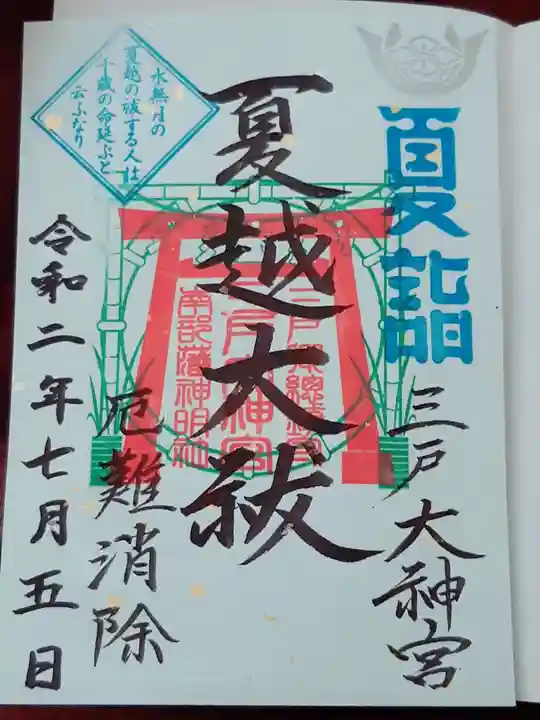 夏詣
三戸大神宮
夏越大祓
三戸郷総鎮守
三戸大神宮
南部藩神明社
厄難消除
水無月の
夏越の祓する人は
千歳の命延ぶと
云ふなり
令和二年七月五日